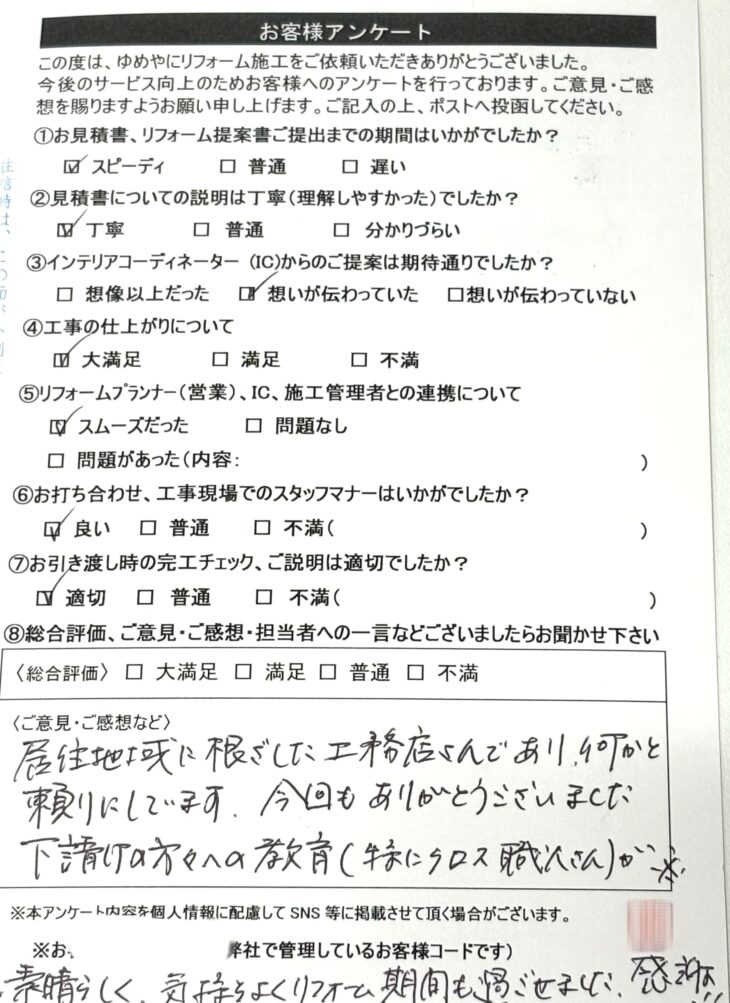 お客様アンケート
この度は、ゆめやにリフォーム施工をご依頼いただきありがとうございました。
今後のサービス向上のためお客様へのアンケートを行っております。ご意見・ご感
想を賜りますようお願い申し上げます。ご記入の上、ポストへ投函してください。
①お見積書、リフォーム提案書ご提出までの期間はいかがでしたか？
☑ スピーディ □ 普通 □ 遅い
②見積書についての説明は丁寧(理解しやすかった)でしたか？
☑ 丁寧 □ 普通 □ 分かりづらい
③インテリアコーディネーター (IC)からのご提案は期待通りでしたか？
□ 想像以上だった ☑ 想いが伝わっていた □想いが伝わっていない
④工事の仕上がりについて
☑ 大満足 □ 満足 □ 不満
⑤リフォームプランナー(営業)、IC、施工管理者との連携について
☑ スムーズだった □ 問題なし
□ 問題があった(内容: )
⑥お打ち合わせ、工事現場でのスタッフマナーはいかがでしたか？
☑ 良い □ 普通 □ 不満( )
⑦お引き渡し時の完工チェック、ご説明は適切でしたか？
☑ 適切 □ 普通 □ 不満( )
⑧総合評価、ご意見・ご感想・担当者への一言などございましたらお聞かせ下さい
〈総合評価〉 □ 大満足 □ 満足 □ 普通 □ 不満
〈ご意見・ご感想など〉
居住地域に根ざした工務店さんであり、何かと
頼りにしています。今回もありがとうございました
下請けの方々への教育(特にクロス職人さん)が※
※本アンケート内容を個人情報に配慮して SNS 等に掲載させて頂く場合がございます。
※お 弊社で管理しているお客様コードです)
素晴らしく、気持ちよくリフォーム期間も過ごせました。感謝